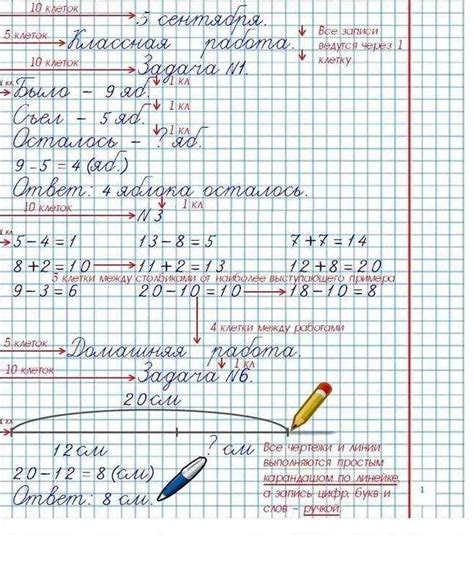 10 клеток 5 сентября.
5 клеток Классная работа. Все записи ведутся через 1 клетку
10 клеток Задача №1.
1 кл Было – 9 яб. 1 кл
Съел – 5 яб. 1 кл
Осталось – ? яб. 1 кл
9 – 5 = 4 (яб.)
Ответ: 4 яблока осталось.
10 клеток №3 1 кл
5 – 4 = 1 13 – 8 = 5 7 + 7 = 14
8 + 2 = 10 11 + 2 = 13 12 + 8 = 20
3 клетки между столбиками от наиболее выступающего примера
9 – 3 = 6 20 – 10 = 10 18 – 10 = 8
4 клетки между работами
5 клеток Домашняя работа.
10 клеток Задача №6. 1 кл
20 см
12 см ? см
20 – 12 = 8 (см)
Ответ: 8 см.
Все чертежи и линии
выполняются простым
карандашом по линейке,
а запись цифр, букв и
слов – ручкой.
1